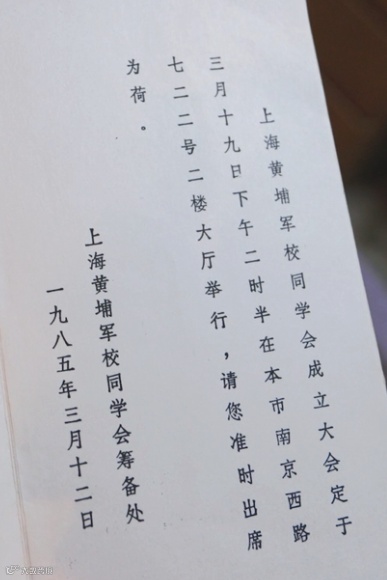 上海黄埔军校同学会成立大会定于
三月十九日下午二时半在本市南京西路
七二二号二楼大厅举行，请您准时出席
为荷。
上海黄埔军校同学会筹备处
一九八五年三月十二日